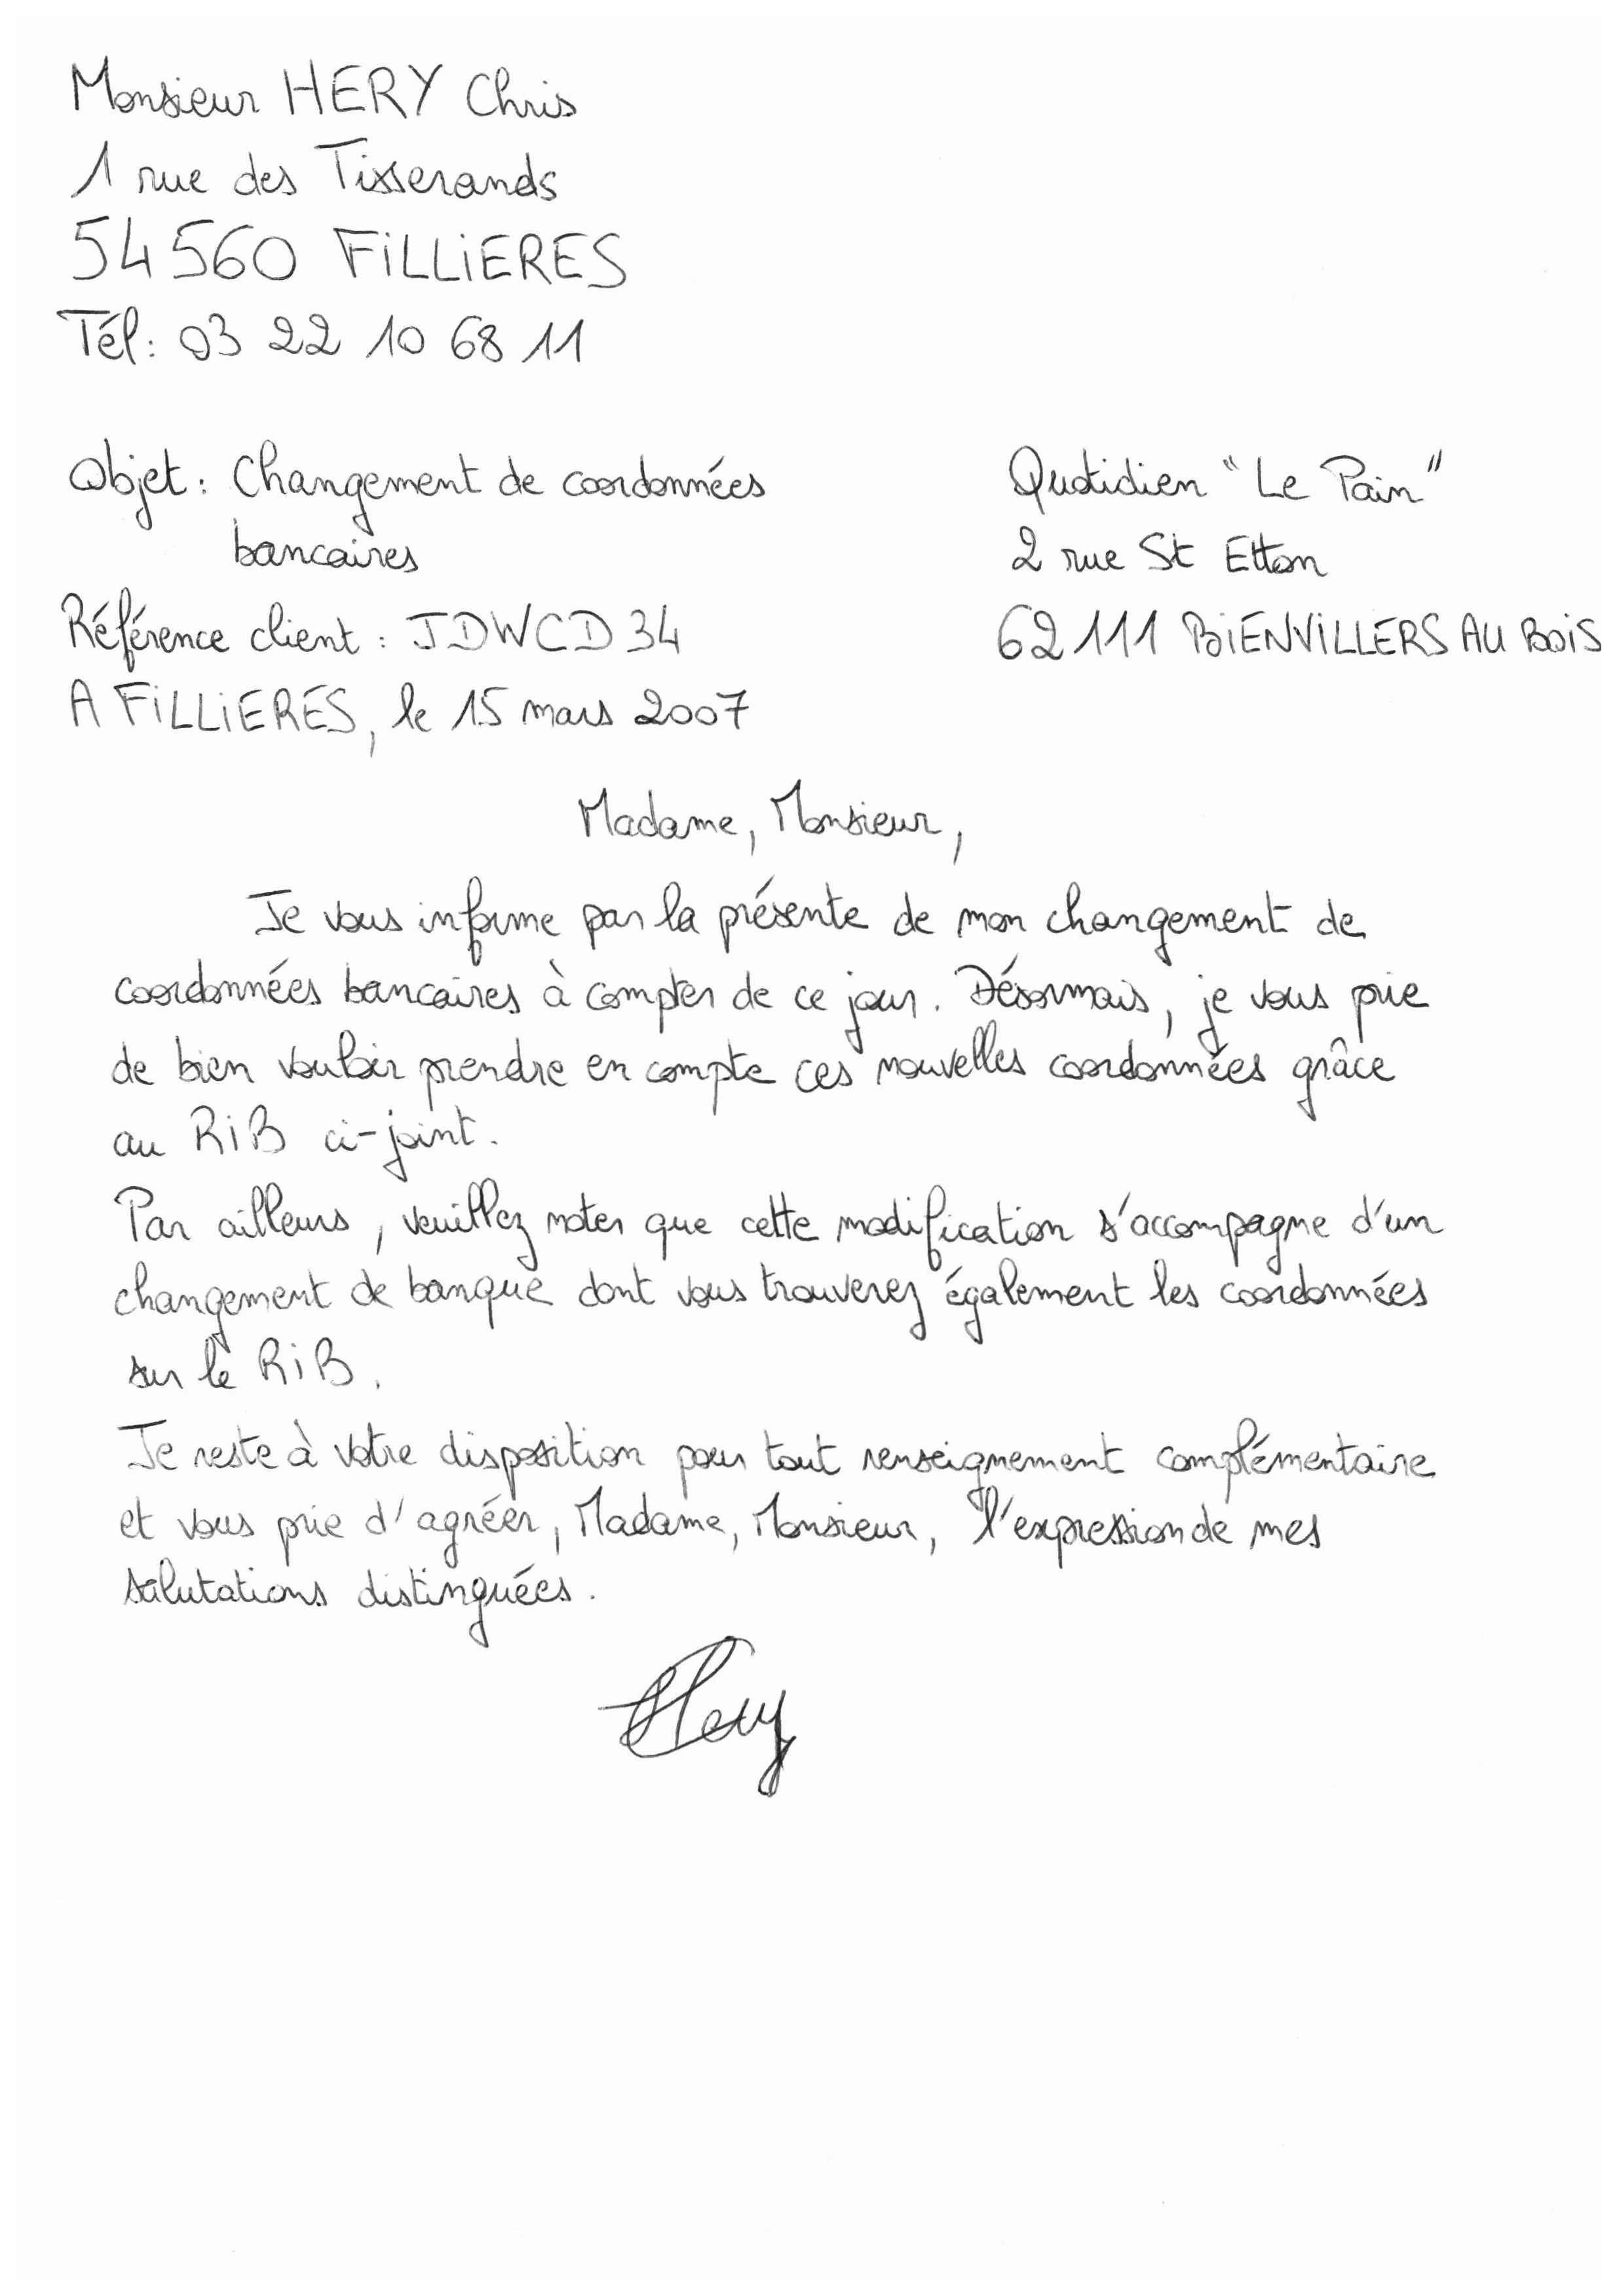 Monsieur HERY Chris
1 rue des Tisserands
54560 FiLLiERES
Tél: 03 22 10 68 11
Objet: Changement de coordonnées
bancaires
Quotidien "Le Pain"
2 rue St Etton
62111 BiENViLLERS AU BOiS
Référence client : JDWCD34
A FiLLiERES, le 15 mars 2007
Madame, Monsieur,
Je vous informe par la présente de mon changement de
coordonnées bancaires à compter de ce jour. Désormais, je vous prie
de bien vouloir prendre en compte ces nouvelles coordonnées grâce
au RiB ci-joint.
Par ailleurs, veuillez noter que cette modification s'accompagne d'un
changement de banque dont vous trouverez également les coordonnées
sur le RiB.
Je reste à votre disposition pour tout renseignement complémentaire
et vous prie d'agréer, Madame, Monsieur, l'expression de mes
salutations distinguées.
Hery